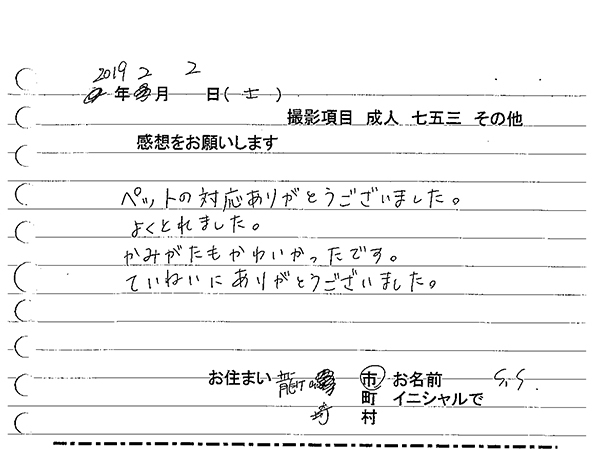 2019 2 2
年 月 日(土)
撮影項目 成人 七五三 その他
感想をお願いします
ペットの対応ありがとうございました。
よくとれました。
かみがたもかわいかったです。
ていねいにありがとうございました。
お住まい 龍 市 お名前 S.S.
崎 町 イニシャルで
村